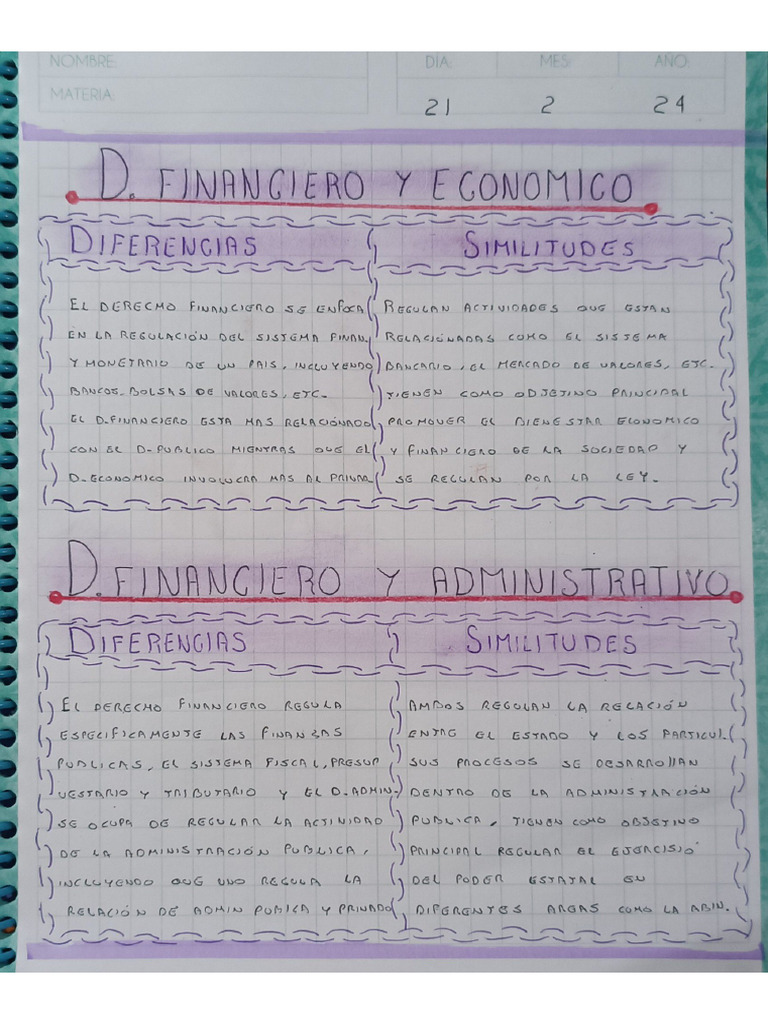 NOMBRE:
DÍA: MES: AÑO:
MATERIA:
21 2 24
D. FINANCIERO Y ECONOMICO
DIFERENCIAS
EL DERECHO FINANCIERO SE ENFOCA
EN LA REGULACIÓN DEL SISTEMA FINAN.
Y MONETARIO DE UN PAIS, INCLUYENDO
BANCOS, BOLSAS DE VALORES, ETC.
EL D.FINANCIERO ESTA MAS RELACIÓNADO
CON EL D-PUBLICO MIENTRAS QUE EL
D-ECONOMICO INVOLUCRA MAS AL PRIVA.
SIMILITUDES
REGULAN ACTIVIDADES QUE ESTAN
RELACIÓNADAS COMO EL SISTEMA
BANCARIO, EL MERCADO DE VALORES, ETC.
TIENEN COMO OBJETIVO PRINCIPAL
PROMOVER EL BIENESTAR ECONOMICO
Y FINANCIERO DE LA SOCIEDAD Y
SE REGULAN POR LA LEY.
D. FINANCIERO Y ADMINISTRATIVO
DIFERENCIAS
EL DERECHO FINANCIERO REGULA
ESPECIFICAMENTE LAS FINANZAS
PUBLICAS, EL SISTEMA FISCAL, PRESUP
UESTARIO Y TRIBUTARIO Y EL D-ADMIN-
SE OCUPA DE REGULAR LA ACTIVIDAD
DE LA ADMINISTRACIÓN PUBLICA,
INCLUYENDO QUE UNO REGULA LA
RELACIÓN DE ADMIN PUBICA Y PRIVADO
SIMILITUDES
AMBOS REGULAN LA RELACIÓN
ENTRE EL ESTADO Y LOS PARTICUL.
SUS PROCESOS SE DESARROLLAN
DENTRO DE LA ADMINISTRACIÓN
PUBLICA, TIENEN COMO OBJETIVO
PRINCIPAL REGULAR EL EJERCISIO
DEL PODER ESTATAL EN
DIFERENTES AREAS COMO LA ADIN.